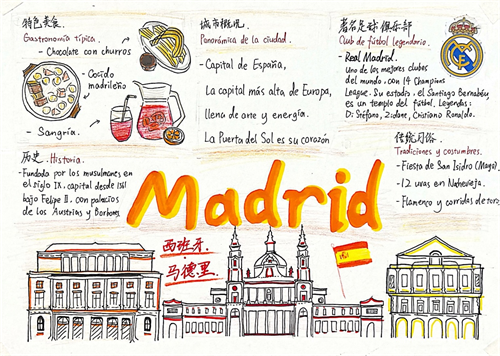 特色美食.
Gastronomía típica.
- Chocolate con churros
- Cocido
madrileño
- Sangría.
城市概况.
Panorámica de la ciudad.
- Capital de España,
La capital más alta de Europa,
llena de arte y energía.
La Puerta del Sol es su corazón
著名足球俱乐部
Club de fútbol legendario.
- Real Madrid.
Uno de los mejores clubes
del mundo, con 14 Champions
League. Su estadio, el Santiago Bernabéu
es un templo del fútbol. Legendas:
Di Stéfano, Zidane, Cristiano Ronaldo.
历史. Historia.
- Fundada por los musulmanes en
el siglo IX, capital desde 1561
bajo Felipe II, con palacios
de los Austrias y Borbones.
传统习俗.
Tradiciones y costumbres.
- Fiesta de San Isidro (Mayo).
- 12 uvas en Nochevieja.
- Flamenco y corridas de toro.
Madrid
西班牙.
马德里.